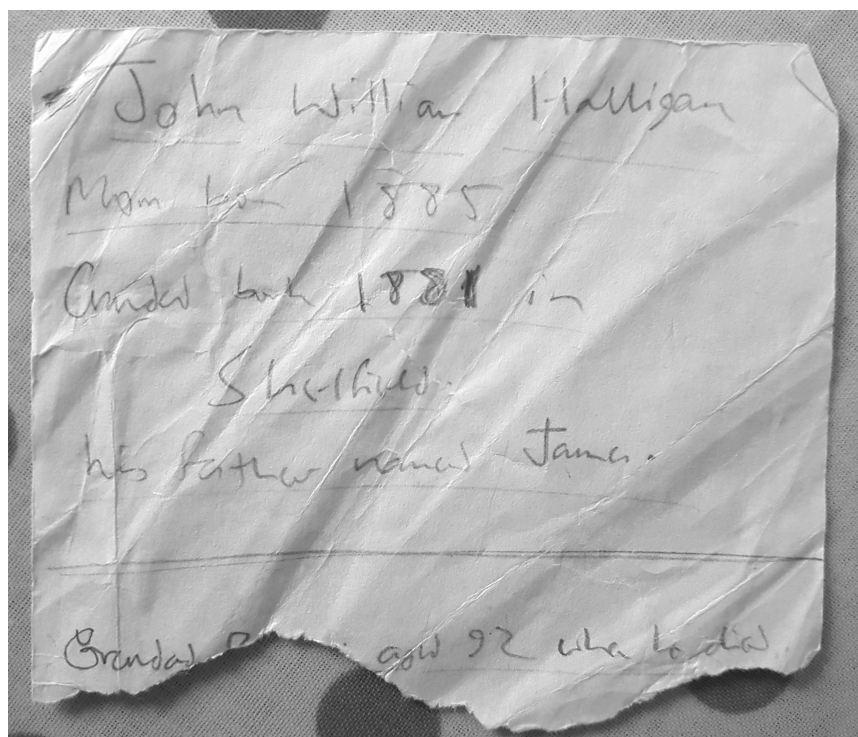 John William Halligan
Mam born 1885
Grandad born 1881 in
Sheffield.
his father named James.
Grandad aged 92 when he died.